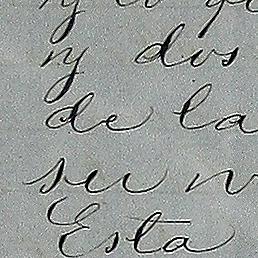 y dos
de la
su
Esta